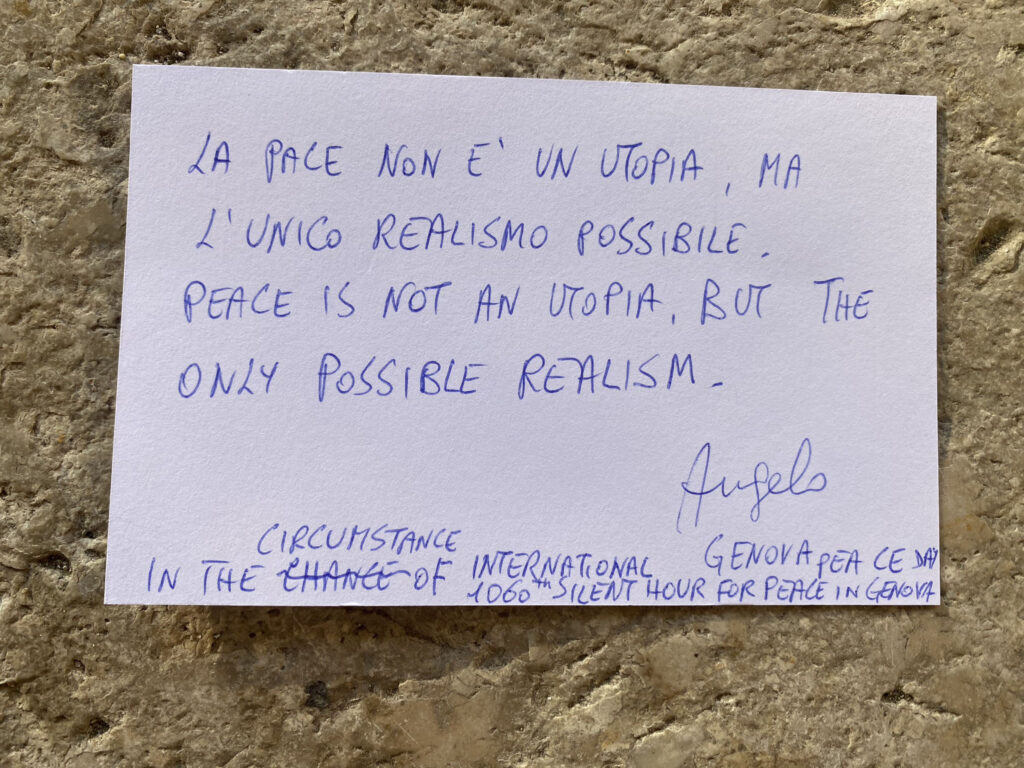 LA PACE NON E' UN UTOPIA, MA
L'UNICO REALISMO POSSIBILE.
PEACE IS NOT AN UTOPIA, BUT THE
ONLY POSSIBLE REALISM.
Angelo
CIRCUMSTANCE
IN THE CHANCE OF INTERNATIONAL GENOVA PEACE DAY
1060th SILENT HOUR FOR PEACE IN GENOVA